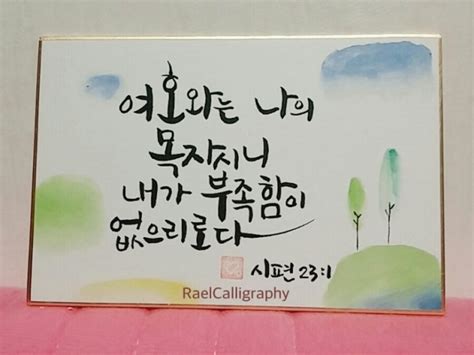 여호와는 나의
목자시니
내가 부족함이
없으리로다
시편 23:1
RaelCalligraphy